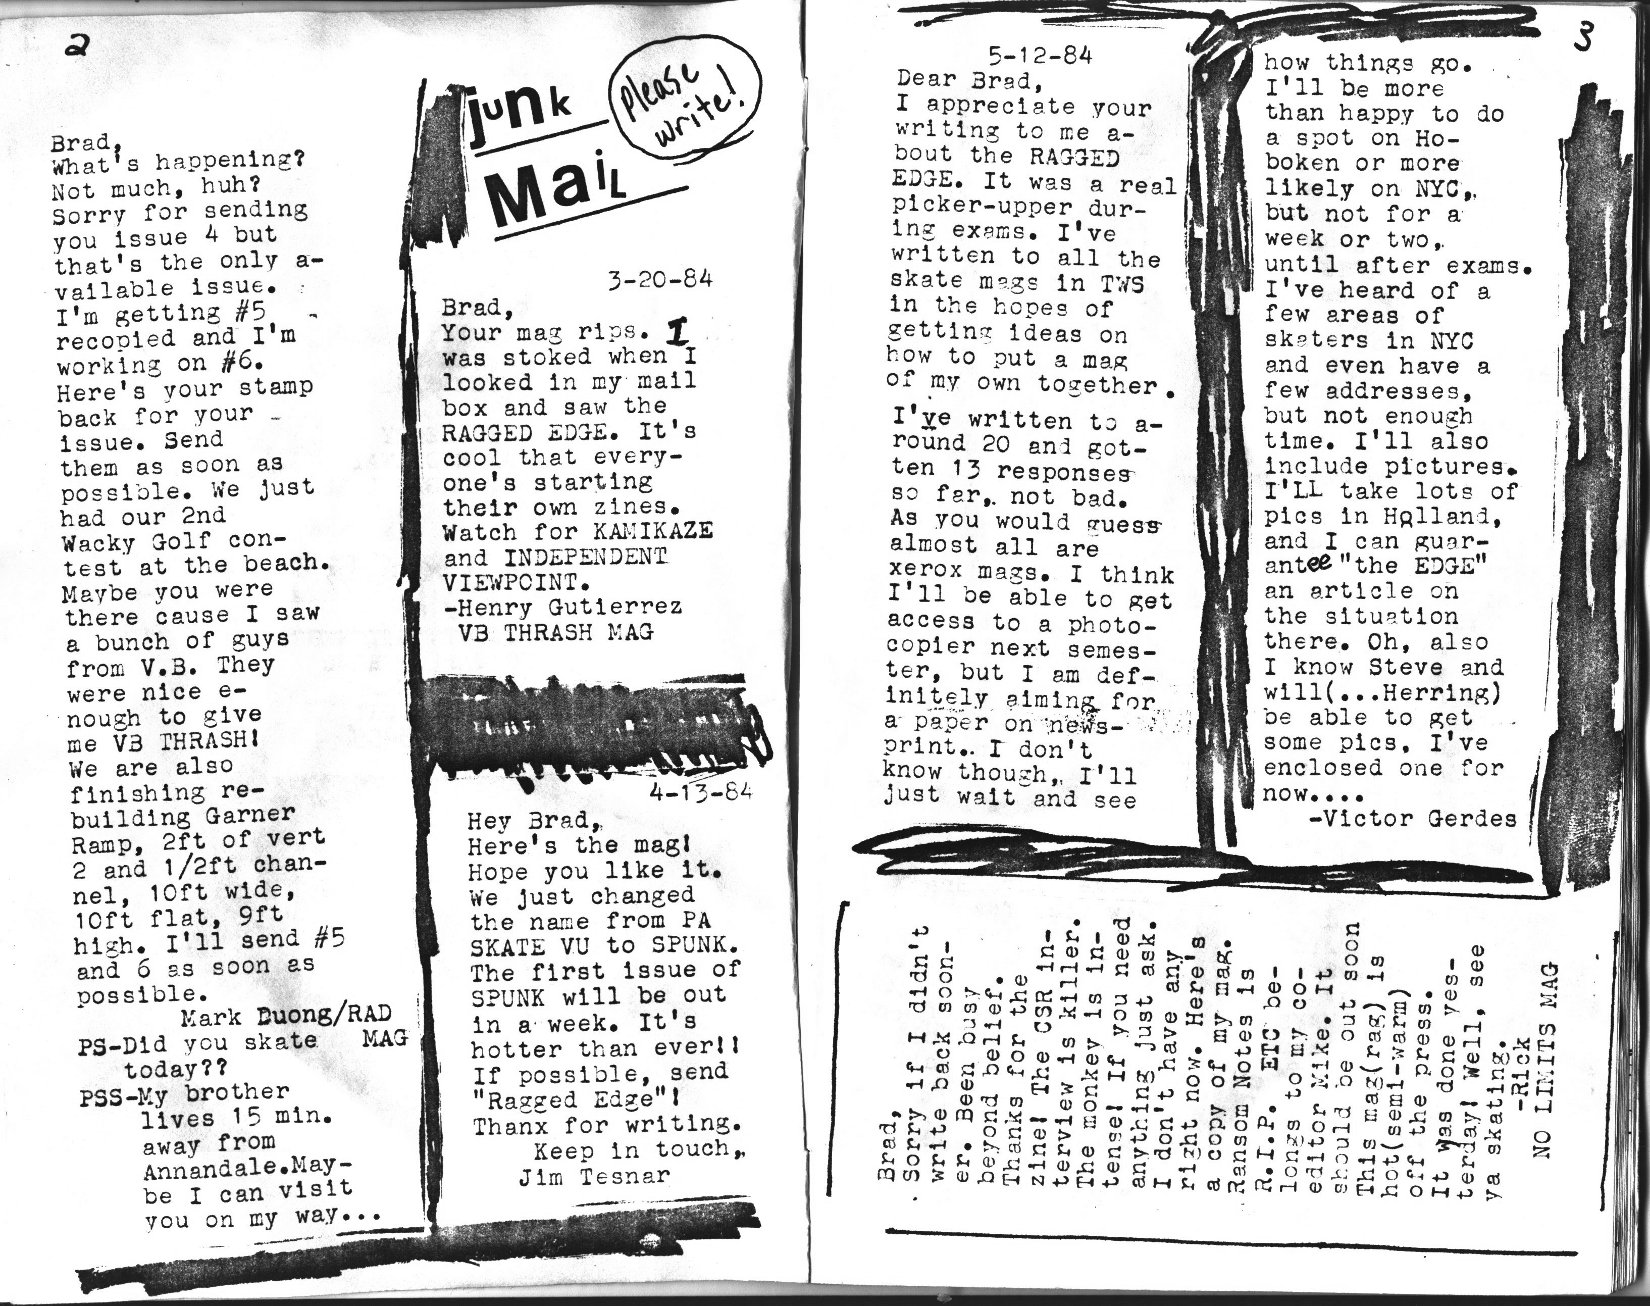 2
Brad,
What's happening?
Not much, huh?
Sorry for sending
you issue 4 but
that's the only a-
vailable issue.
I'm getting #5
recopied and I'm
working on #6.
Here's your stamp
back for your
issue. Send
them as soon as
possible. We just
had our 2nd
Wacky Golf con-
test at the beach.
Maybe you were
there cause I saw
a bunch of guys
from V.B. They
were nice e-
nough to give
me VB THRASH!
We are also
finishing re-
building Garner
Ramp, 2ft of vert
2 and 1/2ft chan-
nel, 10ft wide,
10ft flat, 9ft
high. I'll send #5
and 6 as soon as
possible.
Mark Duong/RAD
MAG
PS-Did you skate
today??
PSS-My brother
lives 15 min.
away from
Annandale.May-
be I can visit
you on my way...
junk
MaiL
please
write!
3-20-84
Brad,
Your mag rips. I
was stoked when I
looked in my mail
box and saw the
RAGGED EDGE. It's
cool that every-
one's starting
their own zines.
Watch for KAMIKAZE
and INDEPENDENT
VIEWPOINT.
-Henry Gutierrez
VB THRASH MAG
4-13-84
Hey Brad,
Here's the mag!
Hope you like it.
We just changed
the name from PA
SKATE VU to SPUNK.
The first issue of
SPUNK will be out
in a week. It's
hotter than ever!!
If possible, send
"Ragged Edge"!
Thanx for writing.
Keep in touch,
Jim Tesnar
5-12-84
Dear Brad,
I appreciate your
writing to me a-
bout the RAGGED
EDGE. It was a real
picker-upper dur-
ing exams. I've
written to all the
skate mags in TWS
in the hopes of
getting ideas on
how to put a mag
of my own together.
I've written to a-
round 20 and got-
ten 13 responses
so far, not bad.
As you would guess
almost all are
xerox mags. I think
I'll be able to get
access to a photo-
copier next semes-
ter, but I am def-
initely aiming for
a paper on news-
print. I don't
know though, I'll
just wait and see
3
how things go.
I'll be more
than happy to do
a spot on Ho-
boken or more
likely on NYC,
but not for a
week or two,
until after exams.
I've heard of a
few areas of
skaters in NYC
and even have a
few addresses,
but not enough
time. I'll also
include pictures.
I'LL take lots of
pics in Holland,
and I can guar-
antee "the EDGE"
an article on
the situation
there. Oh, also
I know Steve and
will(...Herring)
be able to get
some pics. I've
enclosed one for
now....
-Victor Gerdes
Brad,
Sorry if I didn't
write back soon-
er. Been busy
beyond belief.
Thanks for the
zine! The CSR in-
terview is killer.
The monkey is in-
tense! If you need
anything just ask.
I don't have any
right now. Here's
a copy of my mag.
Ransom Notes is
R.I.P. ETC be-
longs to my co-
editor Mike. It
should be out soon
This mag(rag) is
hot(semi-warm)
off the press.
It was done yes-
terday! Well, see
ya skating.
-Rick
NO LIMITS MAG